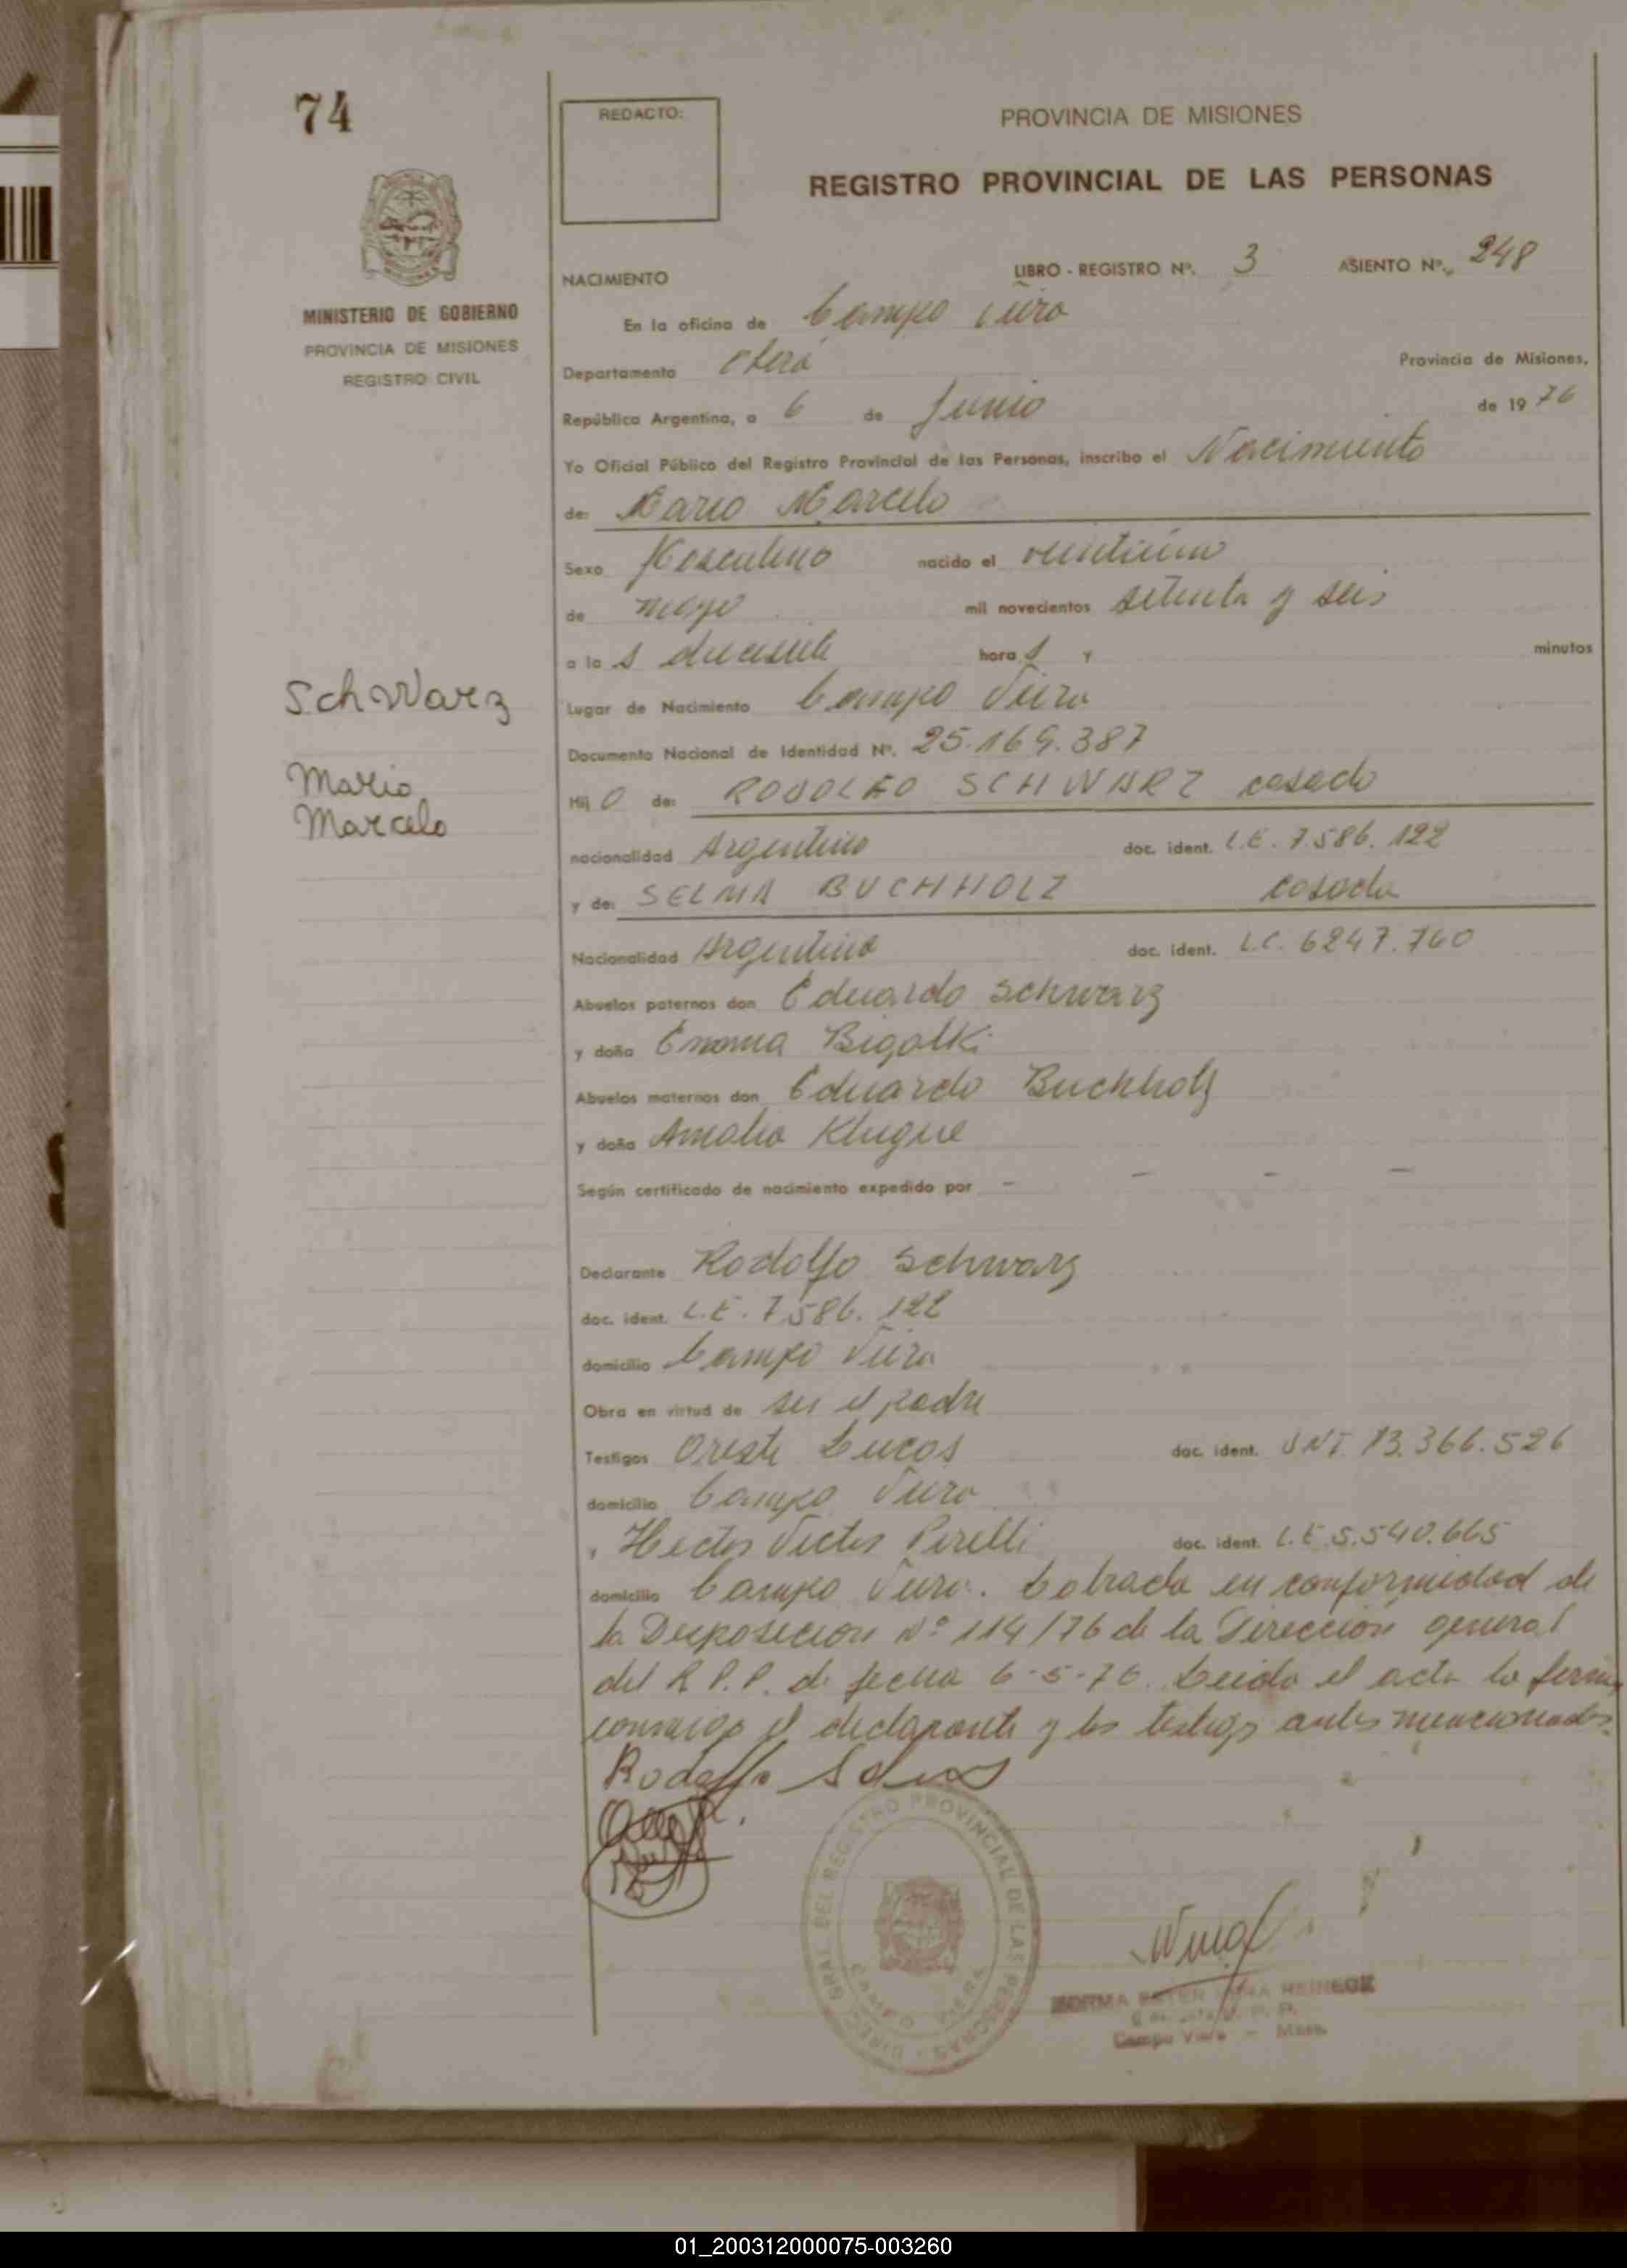 74
REDACTO:
PROVINCIA DE MISIONES
REGISTRO PROVINCIAL DE LAS PERSONAS
MINISTERIO DE GOBIERNO
PROVINCIA DE MISIONES
REGISTRO CIVIL
NACIMIENTO LIBRO - REGISTRO Nº. 3 ASIENTO Nº. 248
En la oficina de Campo Viera
Departamento Oberá Provincia de Misiones,
República Argentina, a 6 de Junio de 1976
Yo Oficial Público del Registro Provincial de las Personas, inscribo el Nacimiento
de: Mario Marcelo
Sexo Masculino nacido el veintiuno
de mayo mil novecientos setenta y seis
a las diecisiete horas y minutos
Schwarz
Lugar de Nacimiento Campo Viera
Documento Nacional de Identidad Nº. 25.169.387
Mario
Marcelo
Hijo de: RODOLFO SCHWARZ casado
nacionalidad Argentino doc. ident. L.E. 7.586.122
y de: SELMA BUCHHOLZ casada
Nacionalidad Argentina doc. ident. L.C. 6247.760
Abuelos paternos don Eduardo Schwarz
y doña Emma Bigalki
Abuelos maternos don Eduardo Buchholz
y doña Amalia Klugue
Según certificado de nacimiento expedido por - - - -
Declarante Rodolfo Schwarz
doc. ident. L.E. 7.586.122
domicilio Campo Viera
Obra en virtud de ser el padre
Testigos Oreste Lucas doc. ident. DNI. 13.366.526
domicilio Campo Viera
Hector Victor Perelli doc. ident. L.E 5.540.665
domicilio Campo Viera. Labrada en conformidad de
la Disposicion Nº 114/76 de la Direccion general
del R.P.P. de fecha 6-5-76. Leida el acta la firma
conmigo el declarante y los testigos antes mencionados.
Rodolfo
DIREC. GRAL. DEL REGISTRO PROVINCIAL DE LAS PERSONAS
CAMPO VIERA
NORMA ESTER HEINECK
Campo Viera - Mnes.
01_200312000075-003260